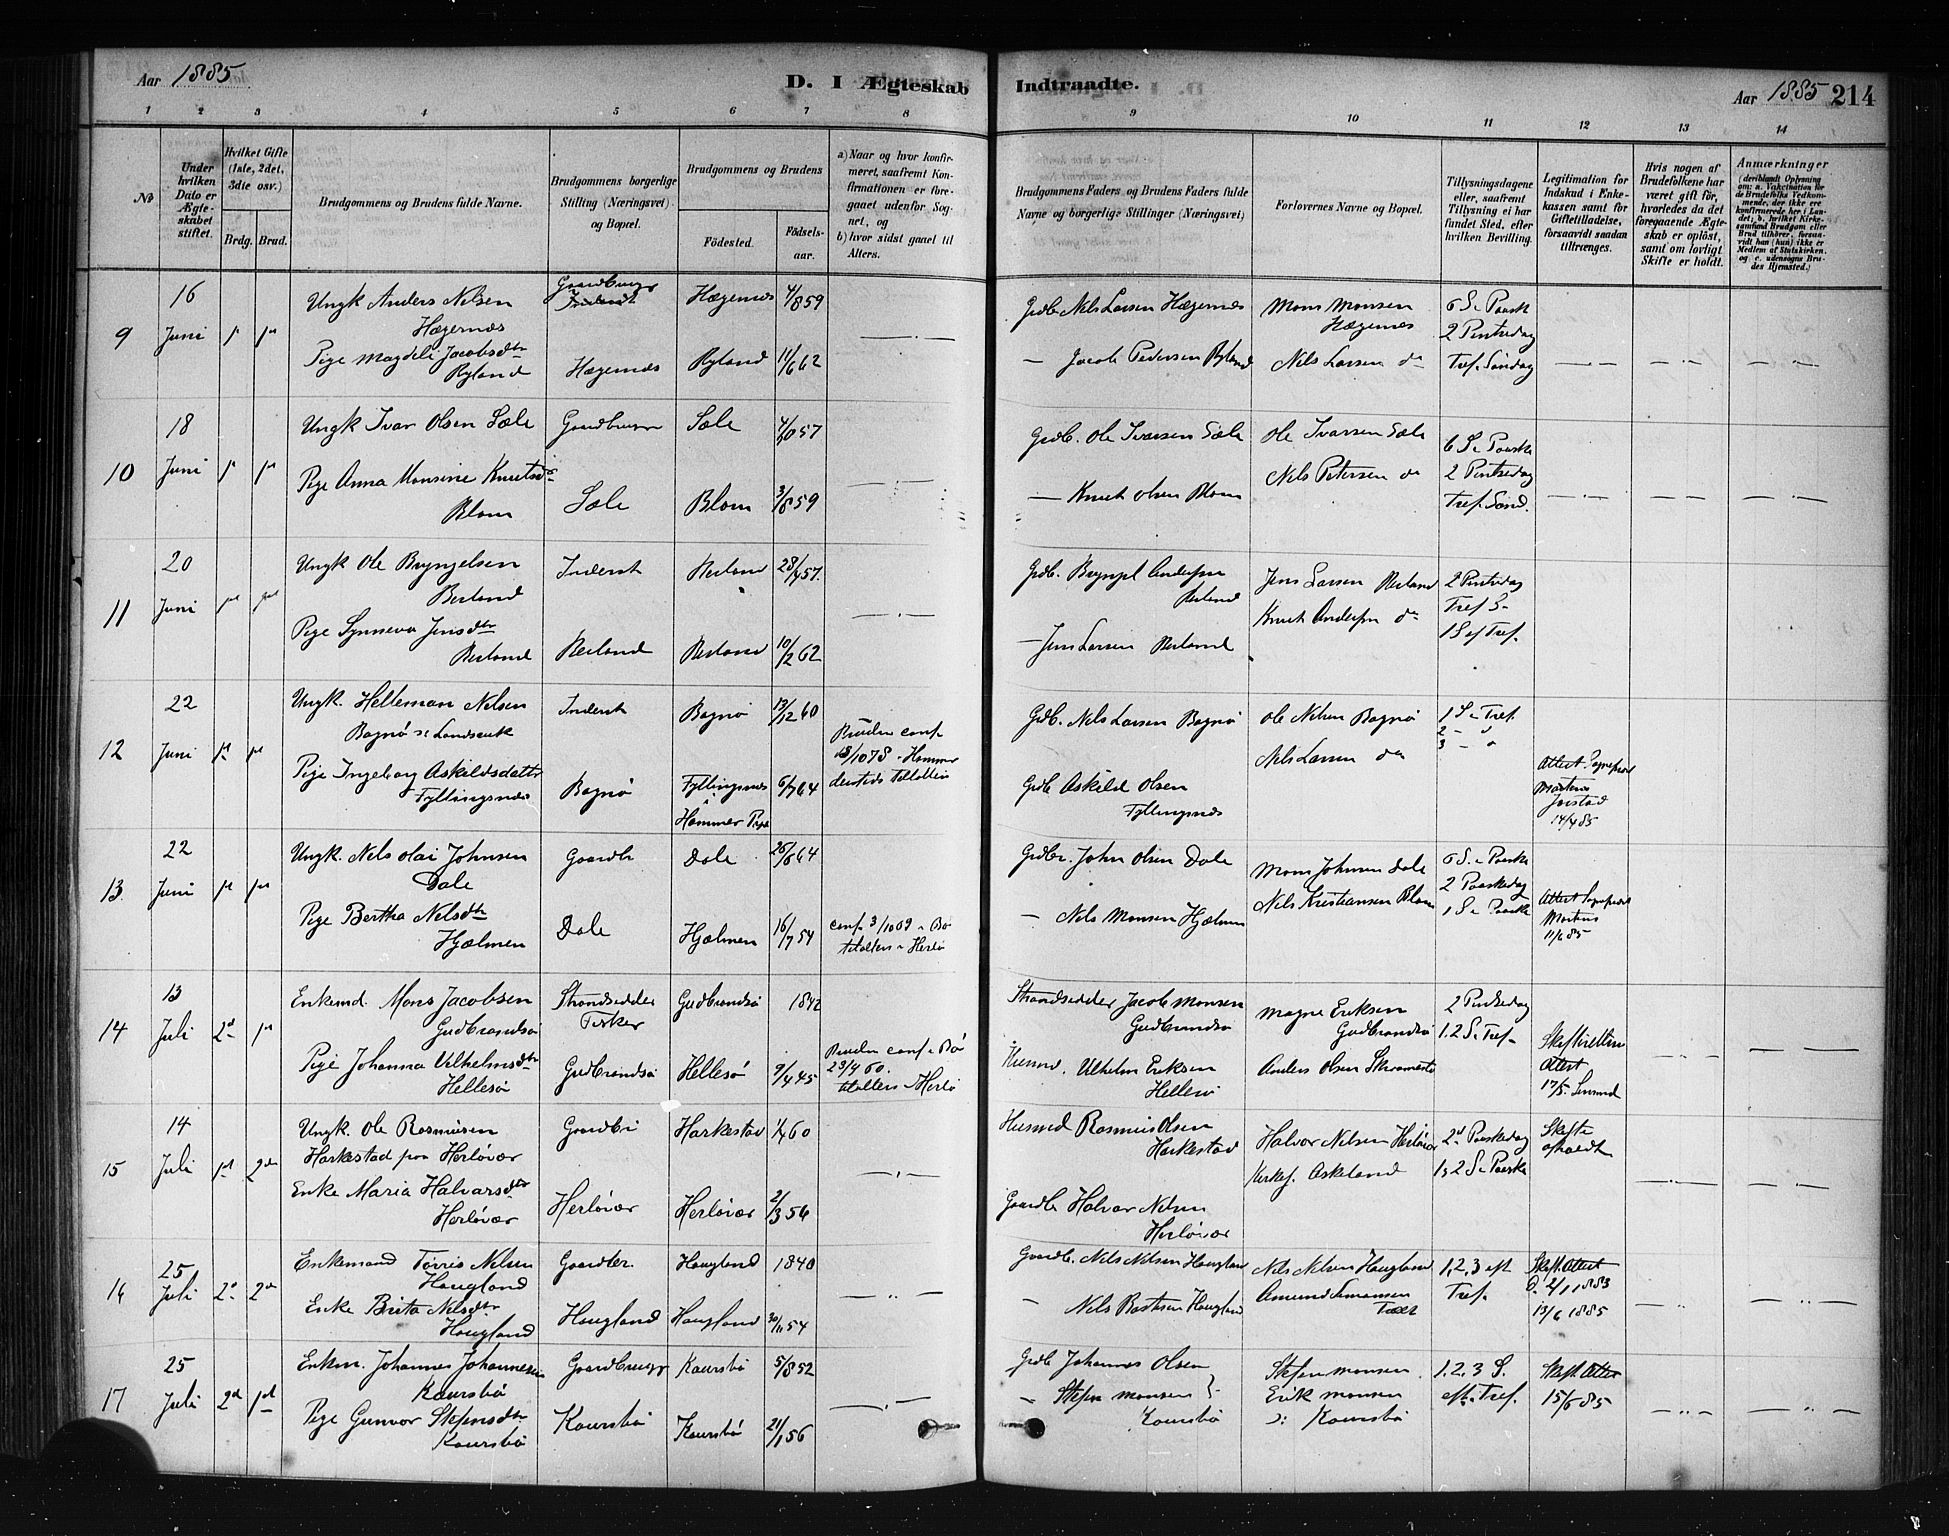 Aar 1885
D. I Ægteskab
Indtraadte.
Aar 1885 214
1 2 3 4 5 6 7 8 9 10 11 12 13 14
No
Under hvilken Dato er Ægteskabet stiftet.
Hvilket Gifte (1ste, 2det, 3die osv.)
Brdg. Brud.
Brudgommens og Brudens fulde Navne.
Brudgommens borgerlige Stilling (Næringsvei) og Bopæl.
Brudgommens og Brudens
Födested. Födsels-aar.
a) Naar og hvor konfirmeret, saafremt Konfirmationen er foregaaet udenfor Sognet, og
b) hvor sidst gaaet til Alters.
Brudgommens Faders og Brudens Faders fulde Navne og borgerlige Stillinger (Næringsvei)
Forlovernes Navne og Bopæl.
Tillysningsdagene eller, saafremt Tillysning ei har fundet Sted, efter hvilken Bevilling.
Legitimation for Indskud i Enkekassen samt for Giftetilladelse, forsaavidt saadan tiltrænges.
Hvis nogen af Brudefolkene har været gift før, hvorledes da det foregaaende Ægteskab er opløst, samt om lovligt Skifte er holdt.
Anmærkninger
(deriblandt Oplysning om: a. Vakcination for de Brudefolks Vedkommende, der ikke ere konfirmerede her i Landet; b. hvilket Kirkesamfund Brudgom eller Brud tilhører, forsaavidt han (hun) ikke er Medlem af Statskirken, og c. udensogns Brudes Hjemsted.)
9
16 Juni
Ungk Anders Nilsen
Hægernæs
Pige Magdeli Jacobsdtr
Ryland
Gaardbruger
Hægernæs
Hægernæs 4/8 59
Ryland 11/6 62
Grdb Nils Larsen Hægernæs
— Jacob Pedersen Ryland
Mons Monsen
Hægernæs
Nils Larsen do
6 S. e Paaske
2 Pintsedag
Tref. Søndag
10
18 Juni
Ungk Ivar Olsen Sæle
Pige Anna Monsine Knutsd
Blom
Gaardbruger
Sæle
Sæle
Blom 3/8 59
Grdb. Ole Ivarsen Sæle
— Knut Olsen Blom
Ole Ivarsen Sæle
Nils Petersen do
6 S. e Paaske
2 Pintsedag
Tref. Sønd.
11
20 Juni
Ungk Ole Bryngelsen
Berland
Pige Synneva Jensdtr
Berland
Inderst
Berland
Berland
Berland 10/2 62
Grdb. Bryngel Andersen
Berland
— Jens Larsen Berland
Jens Larsen Berland
Knut Andersen do
2 Pintsedag
Tref S-
1 S ef Tref.
12
22 Juni
Ungk. Helleman Nilsen
Bognø
Pige Ingeborg Askildsdatter
Fyllingsnæs
Inderst
Bognø
Bognø 13/12 60
Fyllingsnæs 6/7 64
Hammer Pgd
Bruden conf
/10 78 i Hammer
dersteds tilalters
Grdb. Nils Larsen Bognø
Grdb Askild Olsen
Fyllingsnæs
Ole Nilsen Bognø
Nils Larsen do
1 S. e Tref.
2 - "
3 - "
Attest Sognepræst
Martens
14/4 85
13.
22 Juni
Ungk. Nels Olai Johnsen
Dale
Pige Bertha Nelsdtr
Hjælmen
Gaardb
Dale
Dale
Hjælmen 16/7 54
conf. 3/10 69 i Bø
tilalters i Herlø
Grdbr. John Olsen Dale
— Nils Monsen Hjælmen
Mons Johnsen Dale
Nils Kristiansen Blom
6 S. e Paaske
2 Paaskedag
1 S. e Paaske
Attest Sognepræst
Martens
11/6 85
14
13 Juli 2d 1st
Enkemd. Mons Jacobsen
Gudbrandsø
Pige Johanna Vilhelmsdtr
Hellesø
Strandsidder
Fisker
Gudbrandsø
Gudbrandsø 1842
Hellesø 9/4 45
Bruden conf. i Bø
23/4 60.
tilalters i Herlø
Strandsidder Jacob Monsen
Gudbrandsø
Husmd. Vilhelm Eriksen
Hellesø
Magne Eriksen
Gudbrandsø
Anders Olsen
2 Pintsedag
1.2 S. e Tref.
Attest
15
14 Juli 1st 2de
Ungk. Ole Rasmusen
Harkestad paa Herløvær
Enke Maria Halvarsdtr
Herløvær
Gaardbr
Herløvær
Harkestad
Herløvær 2/3 56
Husmd Rasmus Olsen
Harkestad
Gaardb Halvor Nilsen
Herløvær
Halvor Nilsen Herløvær
Kirkes. Askeland
2d Paaskedag
1 & 2 S. e Paaske
Skifte
afholdt
16
25 Juli 2d 2de
Enkemand Torris Nilsen
Hougland
Enke Brita Nilsdtr
Hougland
Gaardbr.
Hougland
Hougland 1840
Hougland 30/11 54
Gaardb. Nils Nilsen Hougland
— Nils Hougland
Nils Nilsen Hougland
Amund Simonsen
1, 2, 3 eft
Tref.
Skift. Attest
13/6 1885
17
25 Juli 2d 1st
Enkm. Johannes Johannesen
Kaursbø
Pige Gunvor Stefensdtr
Kaursbø
Gaardbruger
Kaursbø
Kaursbø 5/8 52
Kaursbø 21/1 56
Grdb Johannes Olsen
— Stefen Monsen
Kaursbø
Stefen Monsen
Erik Monsen
Kaursbø
1. 2. 3 S.
eft. Tref.
Skift. Attest
15/6 85